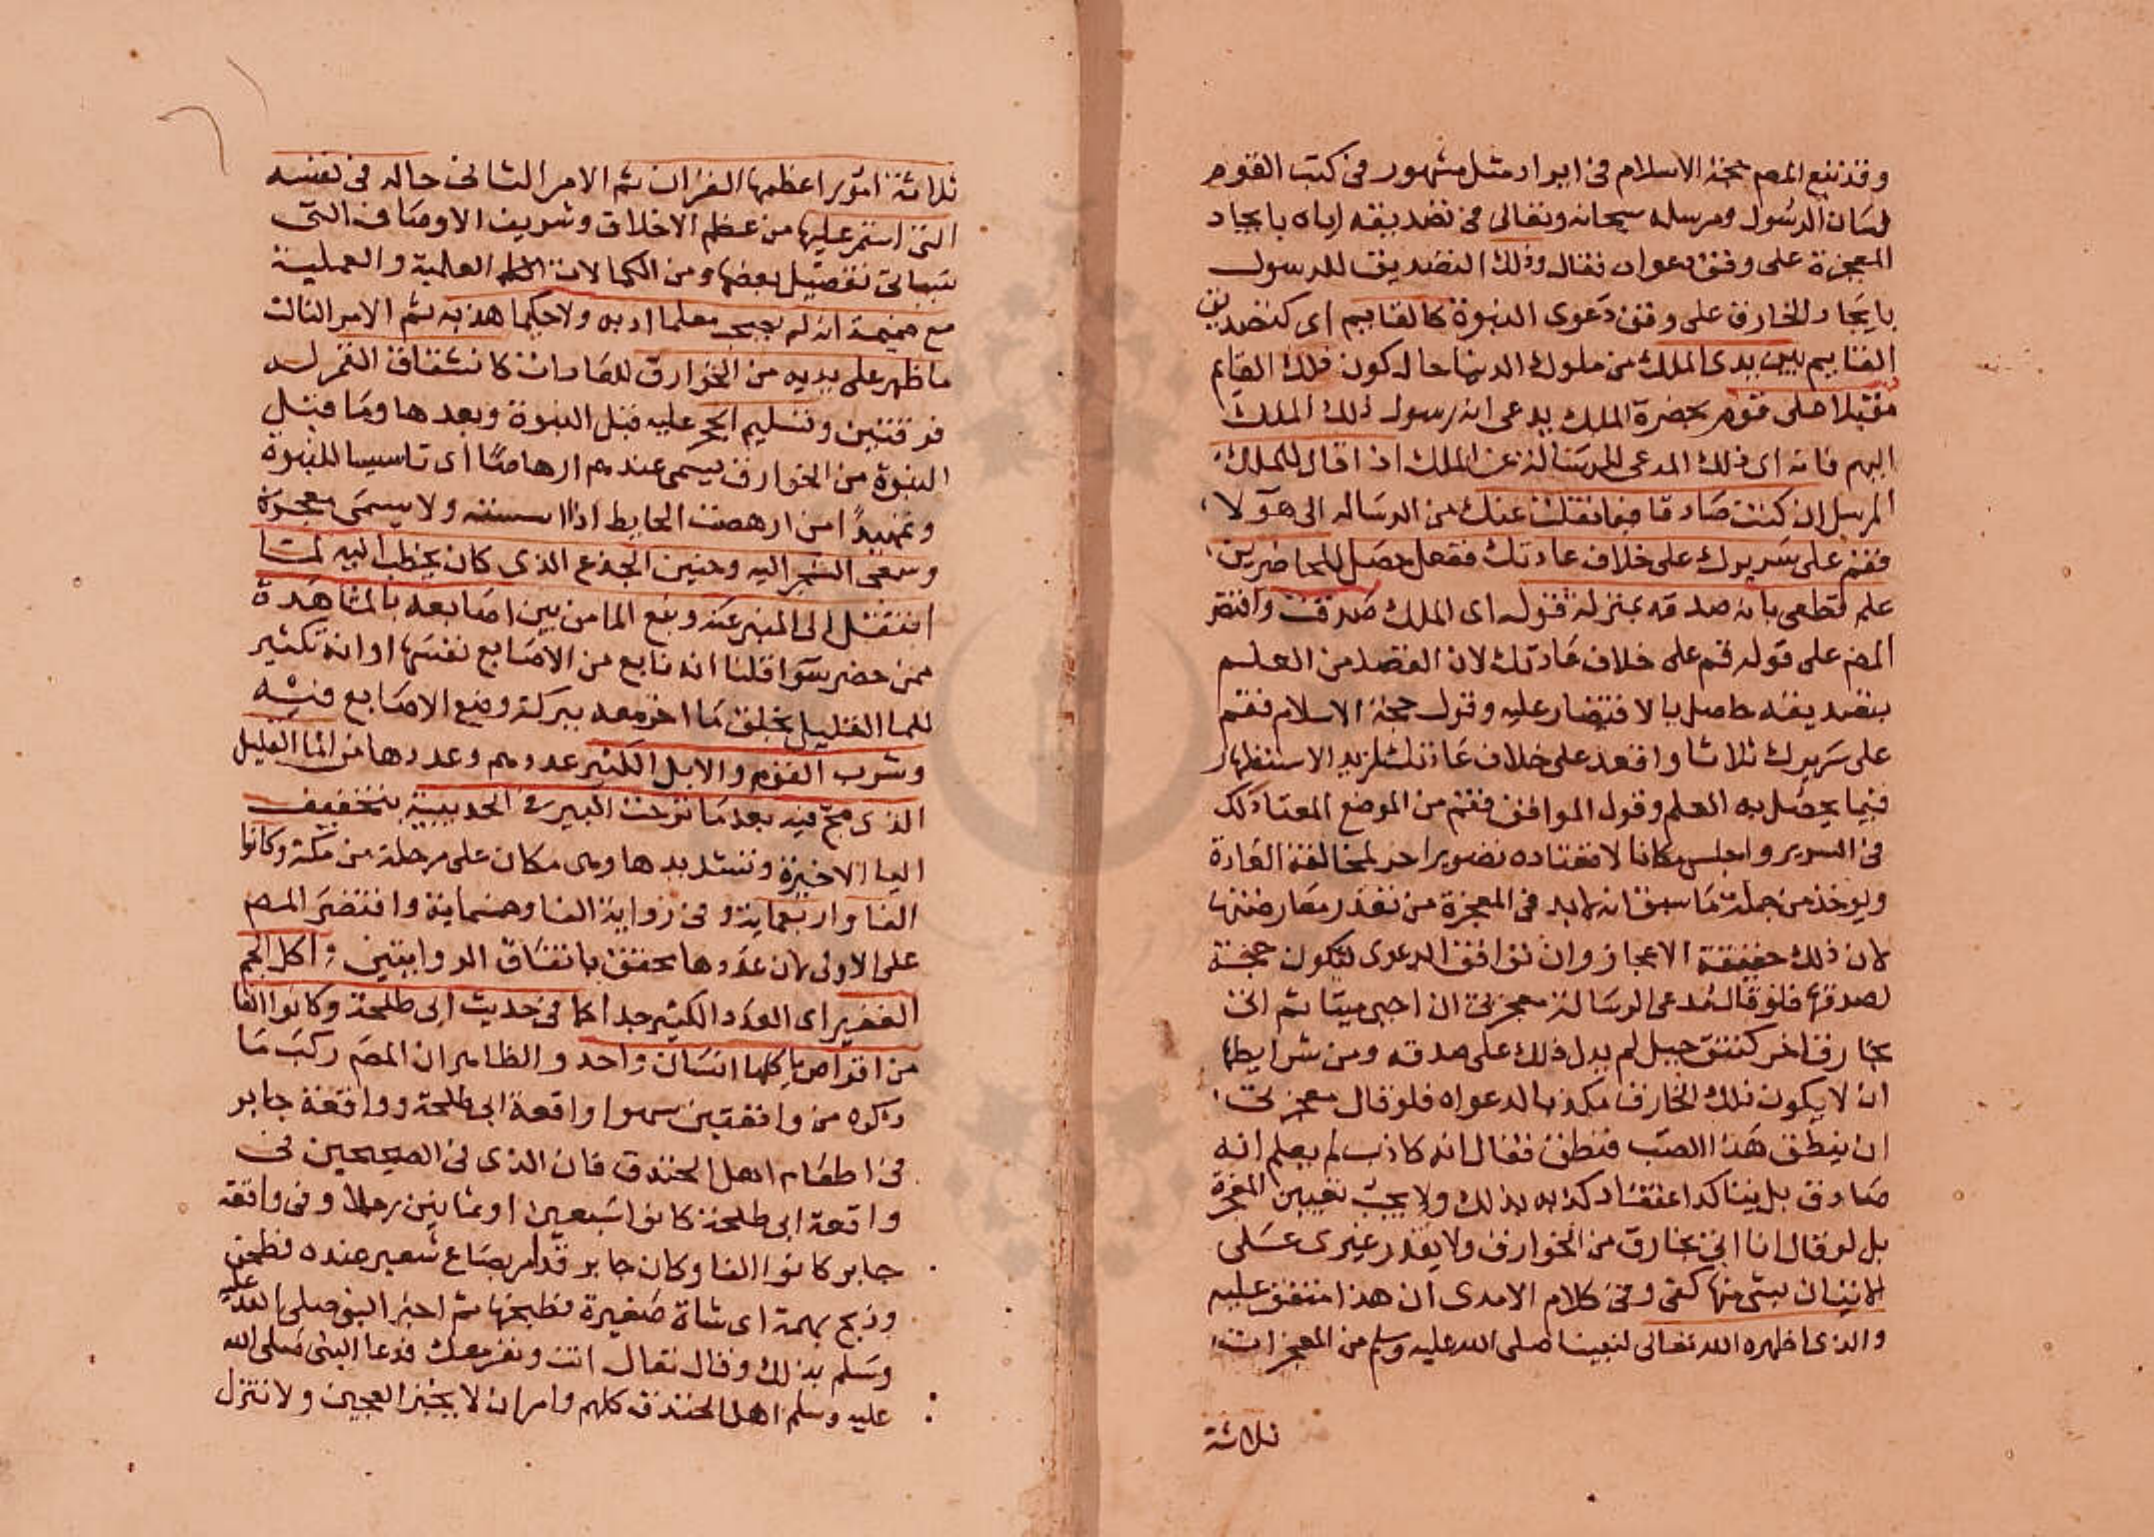 وقد تبع المصم حجة الاسلام في ايراد مثل مشهور في كتب القوم
لشان الرسول ومرسله سبحانه وتعالى في تصديقه اياه بايجاد
المعجزة على وفق دعواه فقال وذلك التصديق للرسول
بايجاد الخارق على وفق دعوى النبوة كالقايم اى كتصديق
القايم بين يدى الملك من ملوك الدنيا حال كون ذلك القايم
مقبلا على قوم بحضرة الملك يدعى انه رسول ذلك الملك
اليهم فانه اى ذلك المدعى للرسالة عن الملك اذا قال للملك
المرسل ان كنت صادقا فيما نقلت عنك من الرساله الى هولا
فقم على سريرك على خلاف عادتك ففعل حصل للحاضرين
علم قطعى بانه صدقه بمنزلة قوله اى الملك صدقت واقتصر
المصم على قوله قم على خلاف عادتك لان القصد من العلم
بتصديقه حاصل بالاقتصار عليه وقول حجة الاسلام فقم
على سريرك ثلاثا واقعد على خلاف عادتك لمزيد الاستظهار
فيما يحصل به العلم وقول المواقف فقم من الموضع المعتاد لك
في السرير واجلس مكانا لا تعتاده تصوير اخر لمخالفة العادة
ويوخذ من جملة ما سبق انه لابد في المعجزة من تعذر معارضتها
لان ذلك حقيقة الاعجاز وان توافق الدعوى لتكون حجة
لصدقها فلو قال مدعى الرسالة معجزتى ان احيى ميتا ثم اتى
بخارق اخر كنتق جبل لم يدل ذلك على صدقه ومن شرايطها
ان لا يكون ذلك الخارق مكذبا لدعواه فلو قال معجزتى
ان ينطق هذا الضب فنطق فقال انه كاذب لم يعلم انه
صادق بل يتاكد اعتقاد كذبه بذلك ولا يجب تعيين المعجزة
بل لو قال انا اتى بخارق من الخوارق ولا يقدر غيرى على
الاتيان بشى منها كفى وفي كلام الامدى ان هذا متفق عليه
والذى اظهره الله تعالى لنبينا صلى الله عليه وسلم من المعجزات
ثلاثة
ثلاثة امور اعظمها القران ثم الامر الثانى حاله في نفسه
التى استمر عليها من عظم الاخلاق وشريف الاوصاف التى
سياتى تفصيل بعضها ومن الكمالات العلمية والعملية
مع ضميمة انه لم يصحب معلما ادبه ولا حكيما هذبه ثم الامر الثالث
ما ظهر على يديه من الخوارق للعادات كانشقاق القمر له
فرقتين وتسليم الحجر عليه قبل النبوة وبعدها وما قبل
النبوة من الخوارق يسمى عندهم ارهاصا اى تاسيسا للنبوة
وتمهيدا من ارهصت الحايط اذا اسسته ولا يسمى معجزة
وسعى الشجر اليه وحنين الجذع الذى كان يخطب اليه لما
انتقل الى المنبر عنه ونبع الما من بين اصابعه بالمشاهدة
ممن حضر سوا قلنا انه نابع من الاصابع نفسها او انه تكثير
للما القليل بخلق ما اخر معه ببركة وضع الاصابع فيه
وشرب القوم والابل الكثير عددهم وعددها من الما القليل
الذى مج فيه بعد ما نزحت البير في الحديبية بتخفيف
اليا الاخيرة وتشديدها وهى مكان على مرحلة من مكة وكانوا
الفا واربعماية وفي رواية الفا وخمسماية واقتصر المصم
على الاولى لان عددها محقق باتفاق الروايتين واكل الجم
الغفير اى العدد الكثير جدا كما في حديث ابى طلحة وكانوا الفا
من اقراص ياكلها انسان واحد والظاهر ان المصم ركب ما
ذكره من واقعتين سهوا واقعة ابى طلحة وواقعة جابر
في اطعام اهل الخندق فان الذى في الصحيحين في
واقعة ابى طلحة كانوا سبعين او ثمانين رجلا وفي واقعة
جابر كانوا الفا وكان جابر قد امر بصاع شعير عنده فطحن
وذبح بهمة اى شاة صغيرة فطبخها ثم اخبر النبى صلى الله عليه
وسلم بذلك وقال تعال انت ونفر معك فدعا النبى صلى الله
عليه وسلم اهل الخندق كلهم وامر ان لا يخبز العجين ولا تنزل